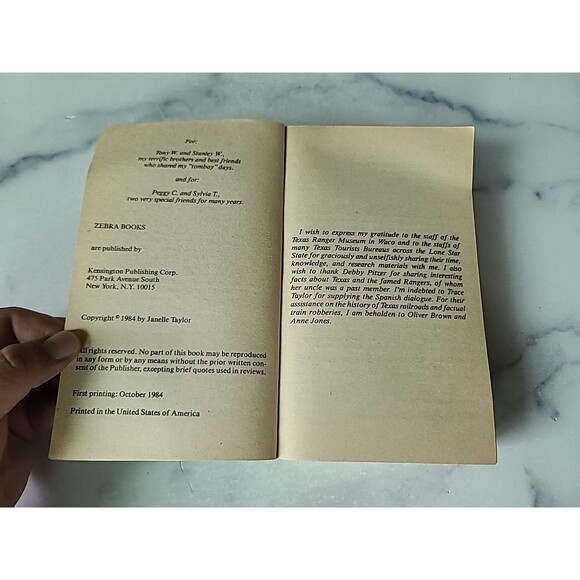 For:
Tony W. and Stanley W.,
my terrific brothers and best friends
who shared my "tomboy" days.
and for:
Peggy C. and Sylvia T.,
two very special friends for many years.
ZEBRA BOOKS
are published by
Kensington Publishing Corp.
475 Park Avenue South
New York, N.Y. 10015
Copyright © 1984 by Janelle Taylor
All rights reserved. No part of this book may be reproduced
in any form or by any means without the prior written con-
sent of the Publisher, excepting brief quotes used in reviews.
First printing: October 1984
Printed in the United States of America
I wish to express my gratitude to the staff of the
Texas Ranger Museum in Waco and to the staffs of
many Texas Tourists Bureaus across the Lone Star
State for graciously and unselfishly sharing their time,
knowledge, and research materials with me. I also
wish to thank Debby Pitzer for sharing interesting
facts about Texas and the famed Rangers, of whom
her uncle was a past member. I'm indebted to Trace
Taylor for supplying the Spanish dialogue. For their
assistance on the history of Texas railroads and factual
train robberies, I am beholden to Oliver Brown and
Anne Jones.